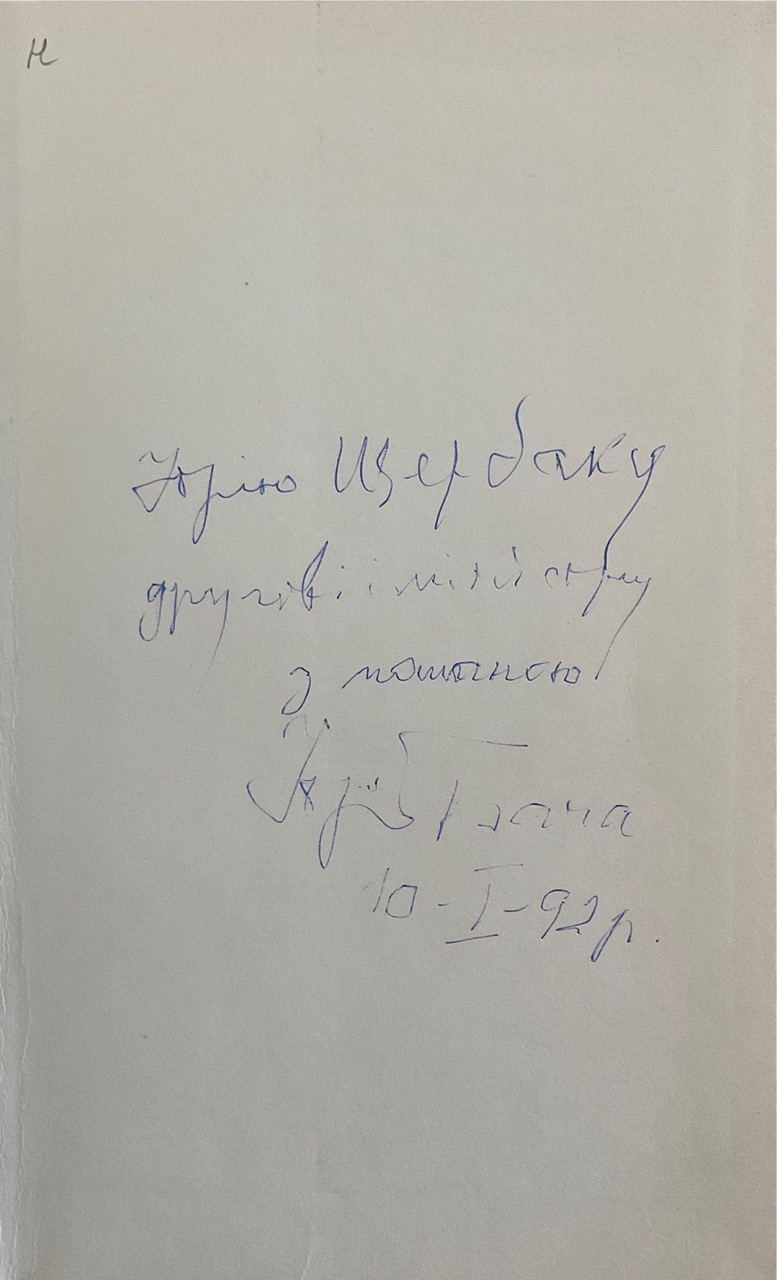 н
Юрію Щербаку
другові і міністру
з пошаною
Юрій
10-I-92 р.